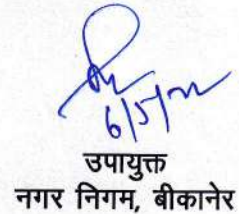 6/5/22
उपायुक्त
नगर निगम, बीकानेर